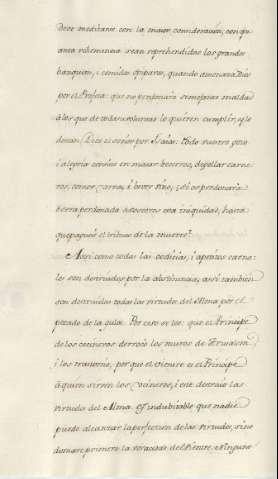 Debe meditarse con la mayor consideración, con qu-
anta vehemencia sean reprehendidos los grandes
banquetes, i comidas opiparas, quando amenaza Dios
por el Profeta: que no perdonaría semejante maldad
à los que de todas maneras lo quieren cumplir, y lo
desean. Dice el señor por Isaias: todo vuestro gozo
i alegria consiste en matar becerros, degollar carne-
ros, comer carne, i bever vino; si os perdonaría
hasta
que pagueis el tributo de la muerte?
Assi como todas las codicias, i apetitos carna-
les son destruidos por la abstinencia; assi tambien
son destruidas todas las virtudes del Alma por el
pecado de la gula. Por esto se lee: que el Principe
de los cocineros derrocó los muros de Jerusalem;
i los trastornó, por que el vientre es el Principe
à quien sirven los cocineros, i este destruie las
virtudes del Alma. Es indubitable que nadie
puede alcanzar la perfeccion de las virtudes, sino
domare primero la voracidad del vientre. Ninguno